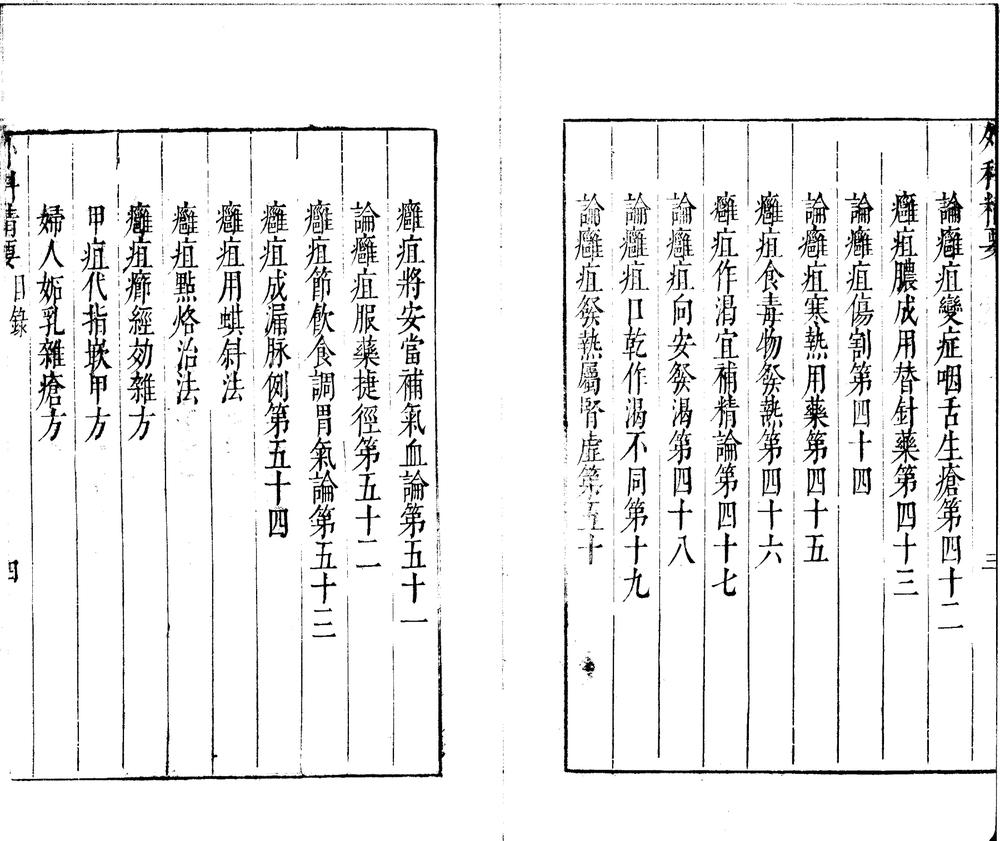 外科精要
三
論癰疽變症咽舌生瘡第四十二
癰疽膿成用替針藥第四十三
論癰疽傷割第四十四
論癰疽寒熱用藥第四十五
癰疽食毒物發熱第四十六
癰疽作渴宜補精論第四十七
論癰疽向安發渴第四十八
論癰疽口乾作渴不同第十九
論癰疽發熱屬腎虛第五十
癰疽將安當補氣血論第五十一
論癰疽服藥捷徑第五十二
癰疽節飲食調胃氣論第五十三
癰疽成漏脉例第五十四
癰疽用蜞鍼法
癰疽點烙治法
癰疽癤經効雜方
甲疽代指嵌甲方
婦人妬乳雜瘡方
外科精要
目錄
四